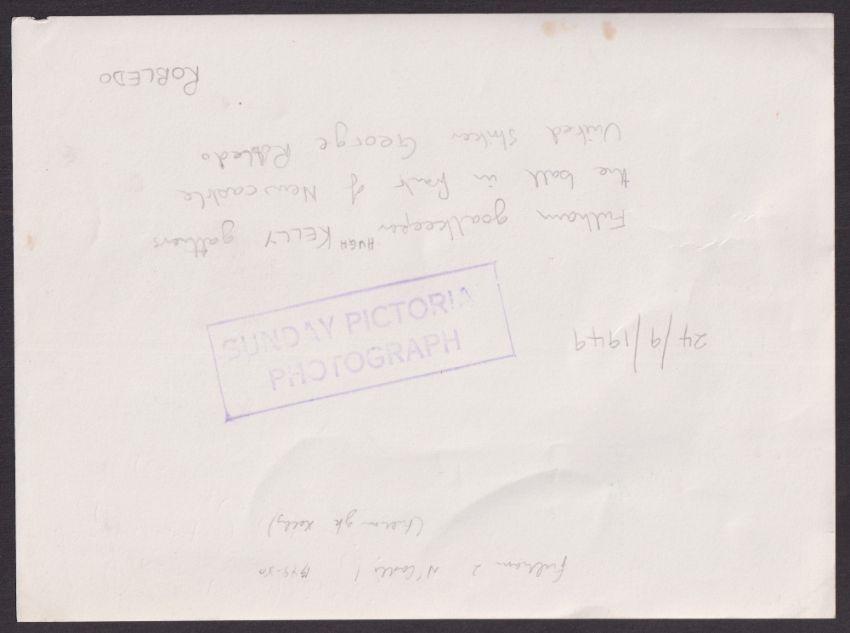 Fulham 2 N'Castle 1 1949-50
24/9/1949
SUNDAY PICTORIAL
PHOTOGRAPH
Fulham goalkeeper HUGH KELLY gathers
the ball in front of Newcastle
United striker George Robledo
ROBLEDO